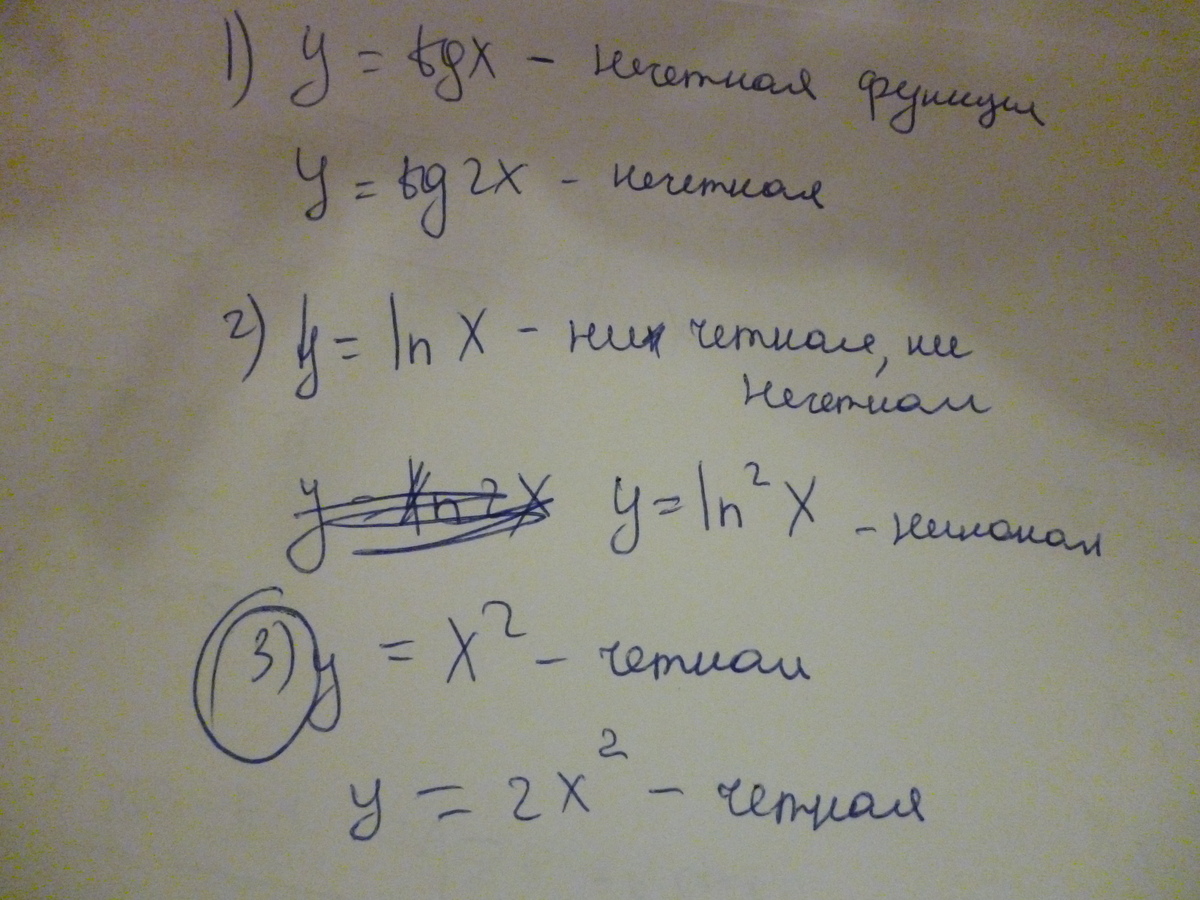 1) y = tgx - нечетная функция
y = tg2x - нечетная
2) y = ln x - ни четная, ни
нечетная
y = ln 2x y = ln²x - никакая
3) y = x² - четная
y = 2x² - четная